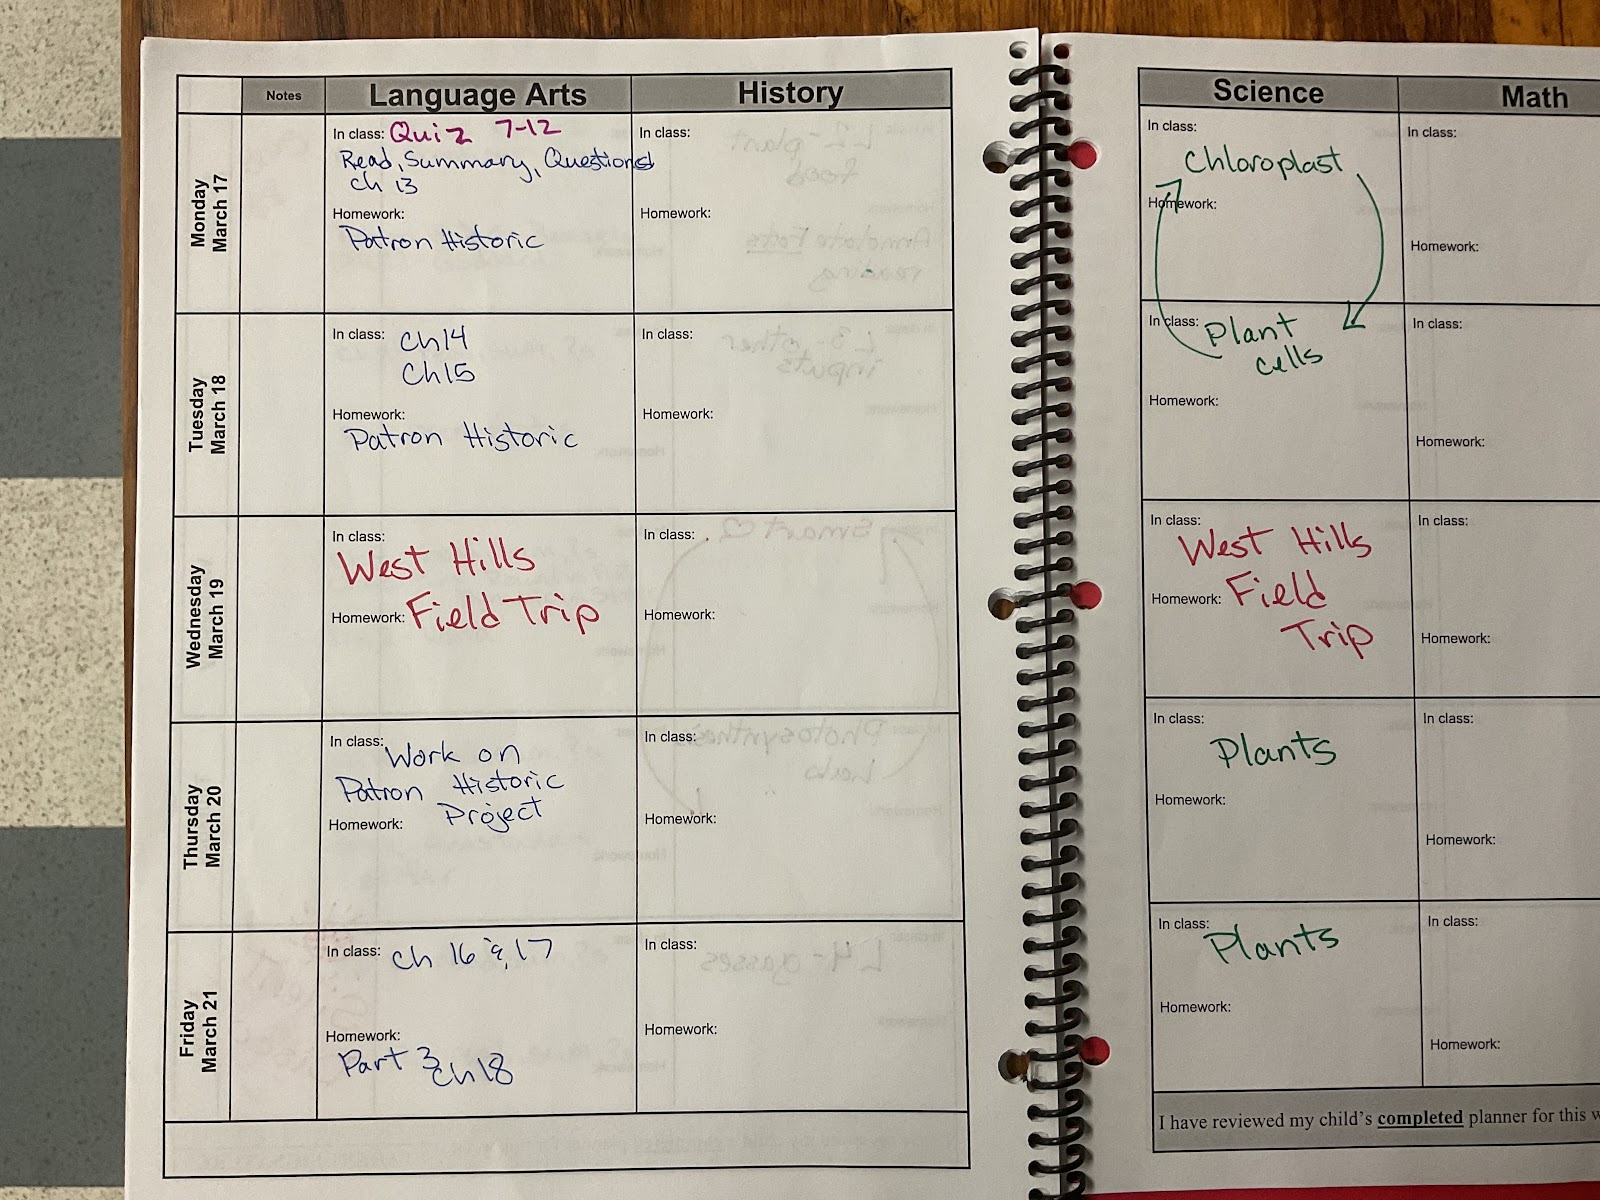 Notes
Language Arts
History
Monday
March 17
In class: Quiz 7-12
Read, Summary, Questions
ch 13
Homework:
Patron Historic
In class:
Homework:
Tuesday
March 18
In class: ch14
Ch15
Homework:
Patron Historic
In class:
Homework:
Wednesday
March 19
In class:
West Hills
Homework: Field Trip
In class:
Homework:
Thursday
March 20
In class: Work on
Patron Historic
Project
Homework:
In class:
Homework:
Friday
March 21
In class: ch 16 & 17
Homework:
Part 3
ch18
In class:
Homework:
Science
Math
In class:
Chloroplast
Homework:
In class:
Homework:
In class: Plant
cells
Homework:
In class:
Homework:
In class:
West Hills
Homework: Field
Trip
In class:
Homework:
In class:
Plants
Homework:
In class:
Homework:
In class: Plants
Homework:
In class:
Homework:
I have reviewed my child's completed planner for this